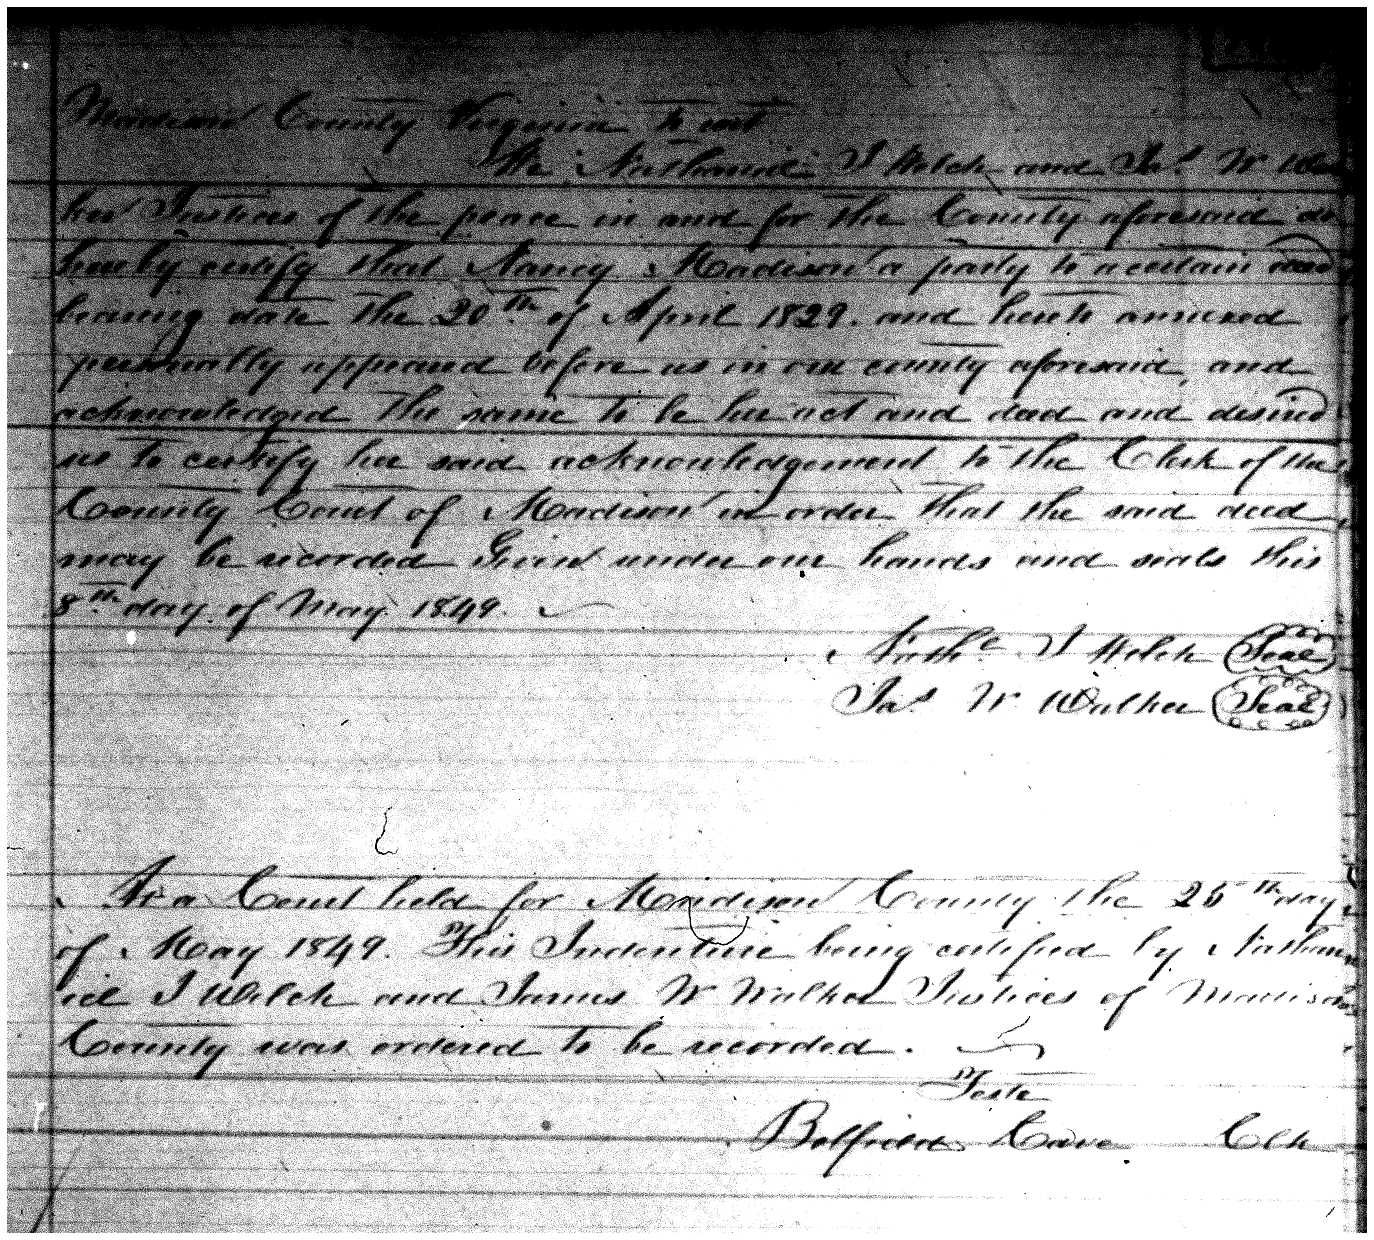 Madison County Virginia to wit
We Nathaniel J Welch and Jas W Wal
ker Justices of the peace in and for the County aforesaid do
hereby certify that Nancy Madison a party to a certain deed
bearing date the 20th of April 1829. and hereto annexed
personally appeared before us in our county aforesaid, and
acknowledged the same to be her act and deed and desired
us to certify her said acknowledgement to the Clerk of the
County Court of Madison in order that the said deed
may be recorded Given under our hands and seals this
8th day of May 1849.
Nathl J Welch Seal
Jas W Walker Seal
At a Court held for Madison County the 25th day
of May 1849. This Indenture being certified by Nathan
iel J Welch and James W Walker Justices of Madison
County was ordered to be recorded.
Teste
Belfield Cave Clk